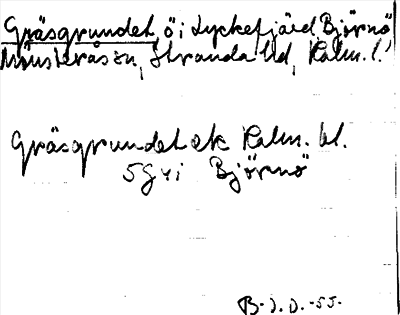 Gräsgrundet, ö i Lyckefjärd, Björnö
Mönsterås sn, Stranda hd, Kalm. l.
Gräsgrundet ek Kalm. bl.
5G4i Björnö
B-J. D. -55-